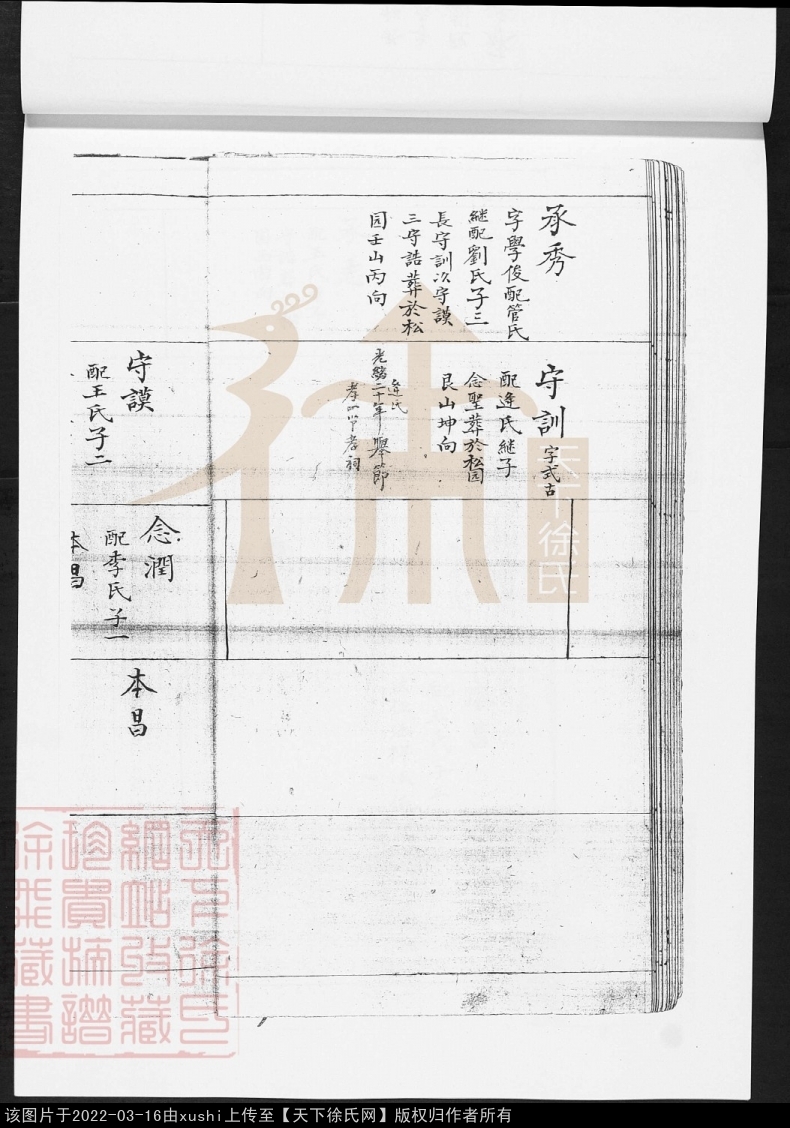 承秀
字學俊配管氏
継配劉氏子三
長守訓次守謨
三守誥葬於松
园壬山丙向
守訓 字式古
配逄氏継子
念聖葬於松园
艮山坤向
逄氏
光緒二十年舉節
守謨
配王氏子二
念潤
配李氏子一
本昌
本昌
天下徐氏
该图片于2022-03-16由xushi上传至【天下徐氏网】版权归作者所有